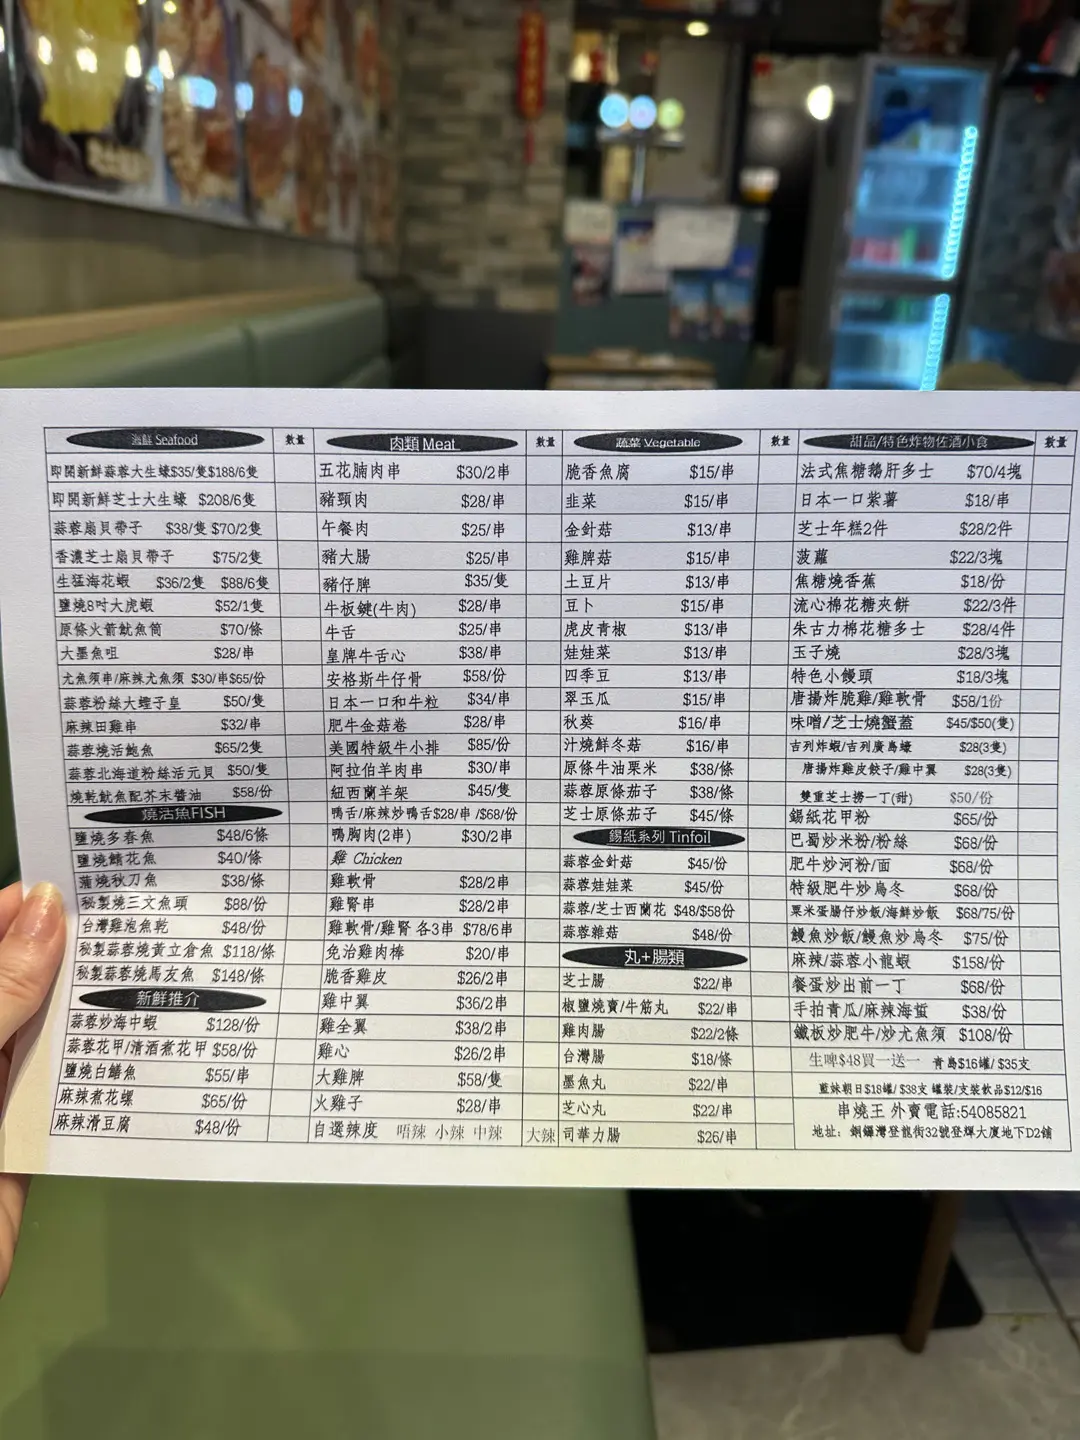 海鮮 Seafood 數量
即開新鮮蒜蓉大生蠔$35/隻$188/6隻
即開新鮮芝士大生蠔 $208/6隻
蒜蓉扇貝帶子 $38/隻 $70/2隻
香濃芝士扇貝帶子 $75/2隻
生猛海花蝦 $36/2隻 $88/6隻
鹽燒8吋大虎蝦 $52/1隻
原條火箭魷魚筒 $70/條
大墨魚咀 $28/串
尤魚須串/麻辣尤魚須 $30/串$65/份
蒜蓉粉絲大蟶子皇 $50/隻
麻辣田雞串 $32/串
蒜蓉燒活鮑魚 $65/2隻
蒜蓉北海道粉絲活元貝 $50/隻
燒乾魷魚配芥末醬油 $58/份
燒活魚FISH
鹽燒多春魚 $48/6條
鹽燒鯖花魚 $40/條
蒲燒秋刀魚 $38/條
秘製燒三文魚頭 $88/份
台灣雞泡魚乾 $48/份
秘製蒜蓉燒黃立倉魚 $118/條
秘製蒜蓉燒馬友魚 $148/條
新鮮推介
蒜蓉炒海中蝦 $128/份
蒜蓉花甲/清酒煮花甲 $58/份
鹽燒白鱔魚 $55/串
麻辣煮花螺 $65/份
麻辣滑豆腐 $48/份
肉類 Meat 數量
五花腩肉串 $30/2串
豬頸肉 $28/串
午餐肉 $25/串
豬大腸 $25/串
豬仔脾 $35/隻
牛板鍵(牛肉) $28/串
牛舌 $25/串
皇牌牛舌心 $38/串
安格斯牛仔骨 $58/份
日本一口和牛粒 $34/串
肥牛金菇卷 $28/串
美國特級牛小排 $85/份
阿拉伯羊肉串 $30/串
紐西蘭羊架 $45/隻
鴨舌/麻辣炒鴨舌$28/串 /$68/份
鴨胸肉(2串) $30/2串
雞 Chicken
雞軟骨 $28/2串
雞腎串 $28/2串
雞軟骨/雞腎 各3串 $78/6串
免治雞肉棒 $20/串
脆香雞皮 $26/2串
雞中翼 $36/2串
雞全翼 $38/2串
雞心 $26/2串
大雞脾 $58/隻
火雞子 $28/串
自選辣度 唔辣 小辣 中辣 大辣
蔬菜 Vegetable 數量
脆香魚腐 $15/串
韭菜 $15/串
金針菇 $13/串
雞脾菇 $15/串
土豆片 $13/串
豆卜 $15/串
虎皮青椒 $13/串
娃娃菜 $13/串
四季豆 $13/串
翠玉瓜 $15/串
秋葵 $16/串
汁燒鮮冬菇 $16/串
原條牛油栗米 $38/條
蒜蓉原條茄子 $38/條
芝士原條茄子 $45/條
錫紙系列 Tinfoil
蒜蓉金針菇 $45/份
蒜蓉娃娃菜 $45/份
蒜蓉/芝士西蘭花 $48/$58份
蒜蓉雜菇 $48/份
丸+腸類
芝士腸 $22/串
椒鹽燒賣/牛筋丸 $22/串
雞肉腸 $22/2條
台灣腸 $18/條
墨魚丸 $22/串
芝心丸 $22/串
司華力腸 $26/串
甜品/特色炸物佐酒小食 數量
法式焦糖鵝肝多士 $70/4塊
日本一口紫薯 $18/串
芝士年糕2件 $28/2件
菠蘿 $22/3塊
焦糖燒香蕉 $18/份
流心棉花糖夾餅 $22/3件
朱古力棉花糖多士 $28/4件
玉子燒 $28/3塊
特色小饅頭 $18/3塊
唐揚炸脆雞/雞軟骨 $58/1份
味噌/芝士燒蟹蓋 $45/$50(隻)
吉列炸蝦/吉列廣島蠔 $28(3隻)
唐揚炸雞皮餃子/雞中翼 $28(3隻)
雙重芝士撈一丁(甜) $50/份
錫紙花甲粉 $65/份
巴蜀炒米粉/粉絲 $68/份
肥牛炒河粉/面 $68/份
特級肥牛炒烏冬 $68/份
粟米蛋腸仔炒飯/海鮮炒飯 $68/75/份
鰻魚炒飯/鰻魚炒烏冬 $75/份
麻辣/蒜蓉小龍蝦 $158/份
餐蛋炒出前一丁 $68/份
手拍青瓜/麻辣海蜇 $38/份
鐵板炒肥牛/炒尤魚須 $108/份
生啤$48買一送一 青島$16罐/ $35支
藍妹朝日$18罐/ $38支 罐裝/支裝飲品$12/$16
串燒王 外賣電話:54085821
地址：銅鑼灣登龍街32號登輝大廈地下D2舖